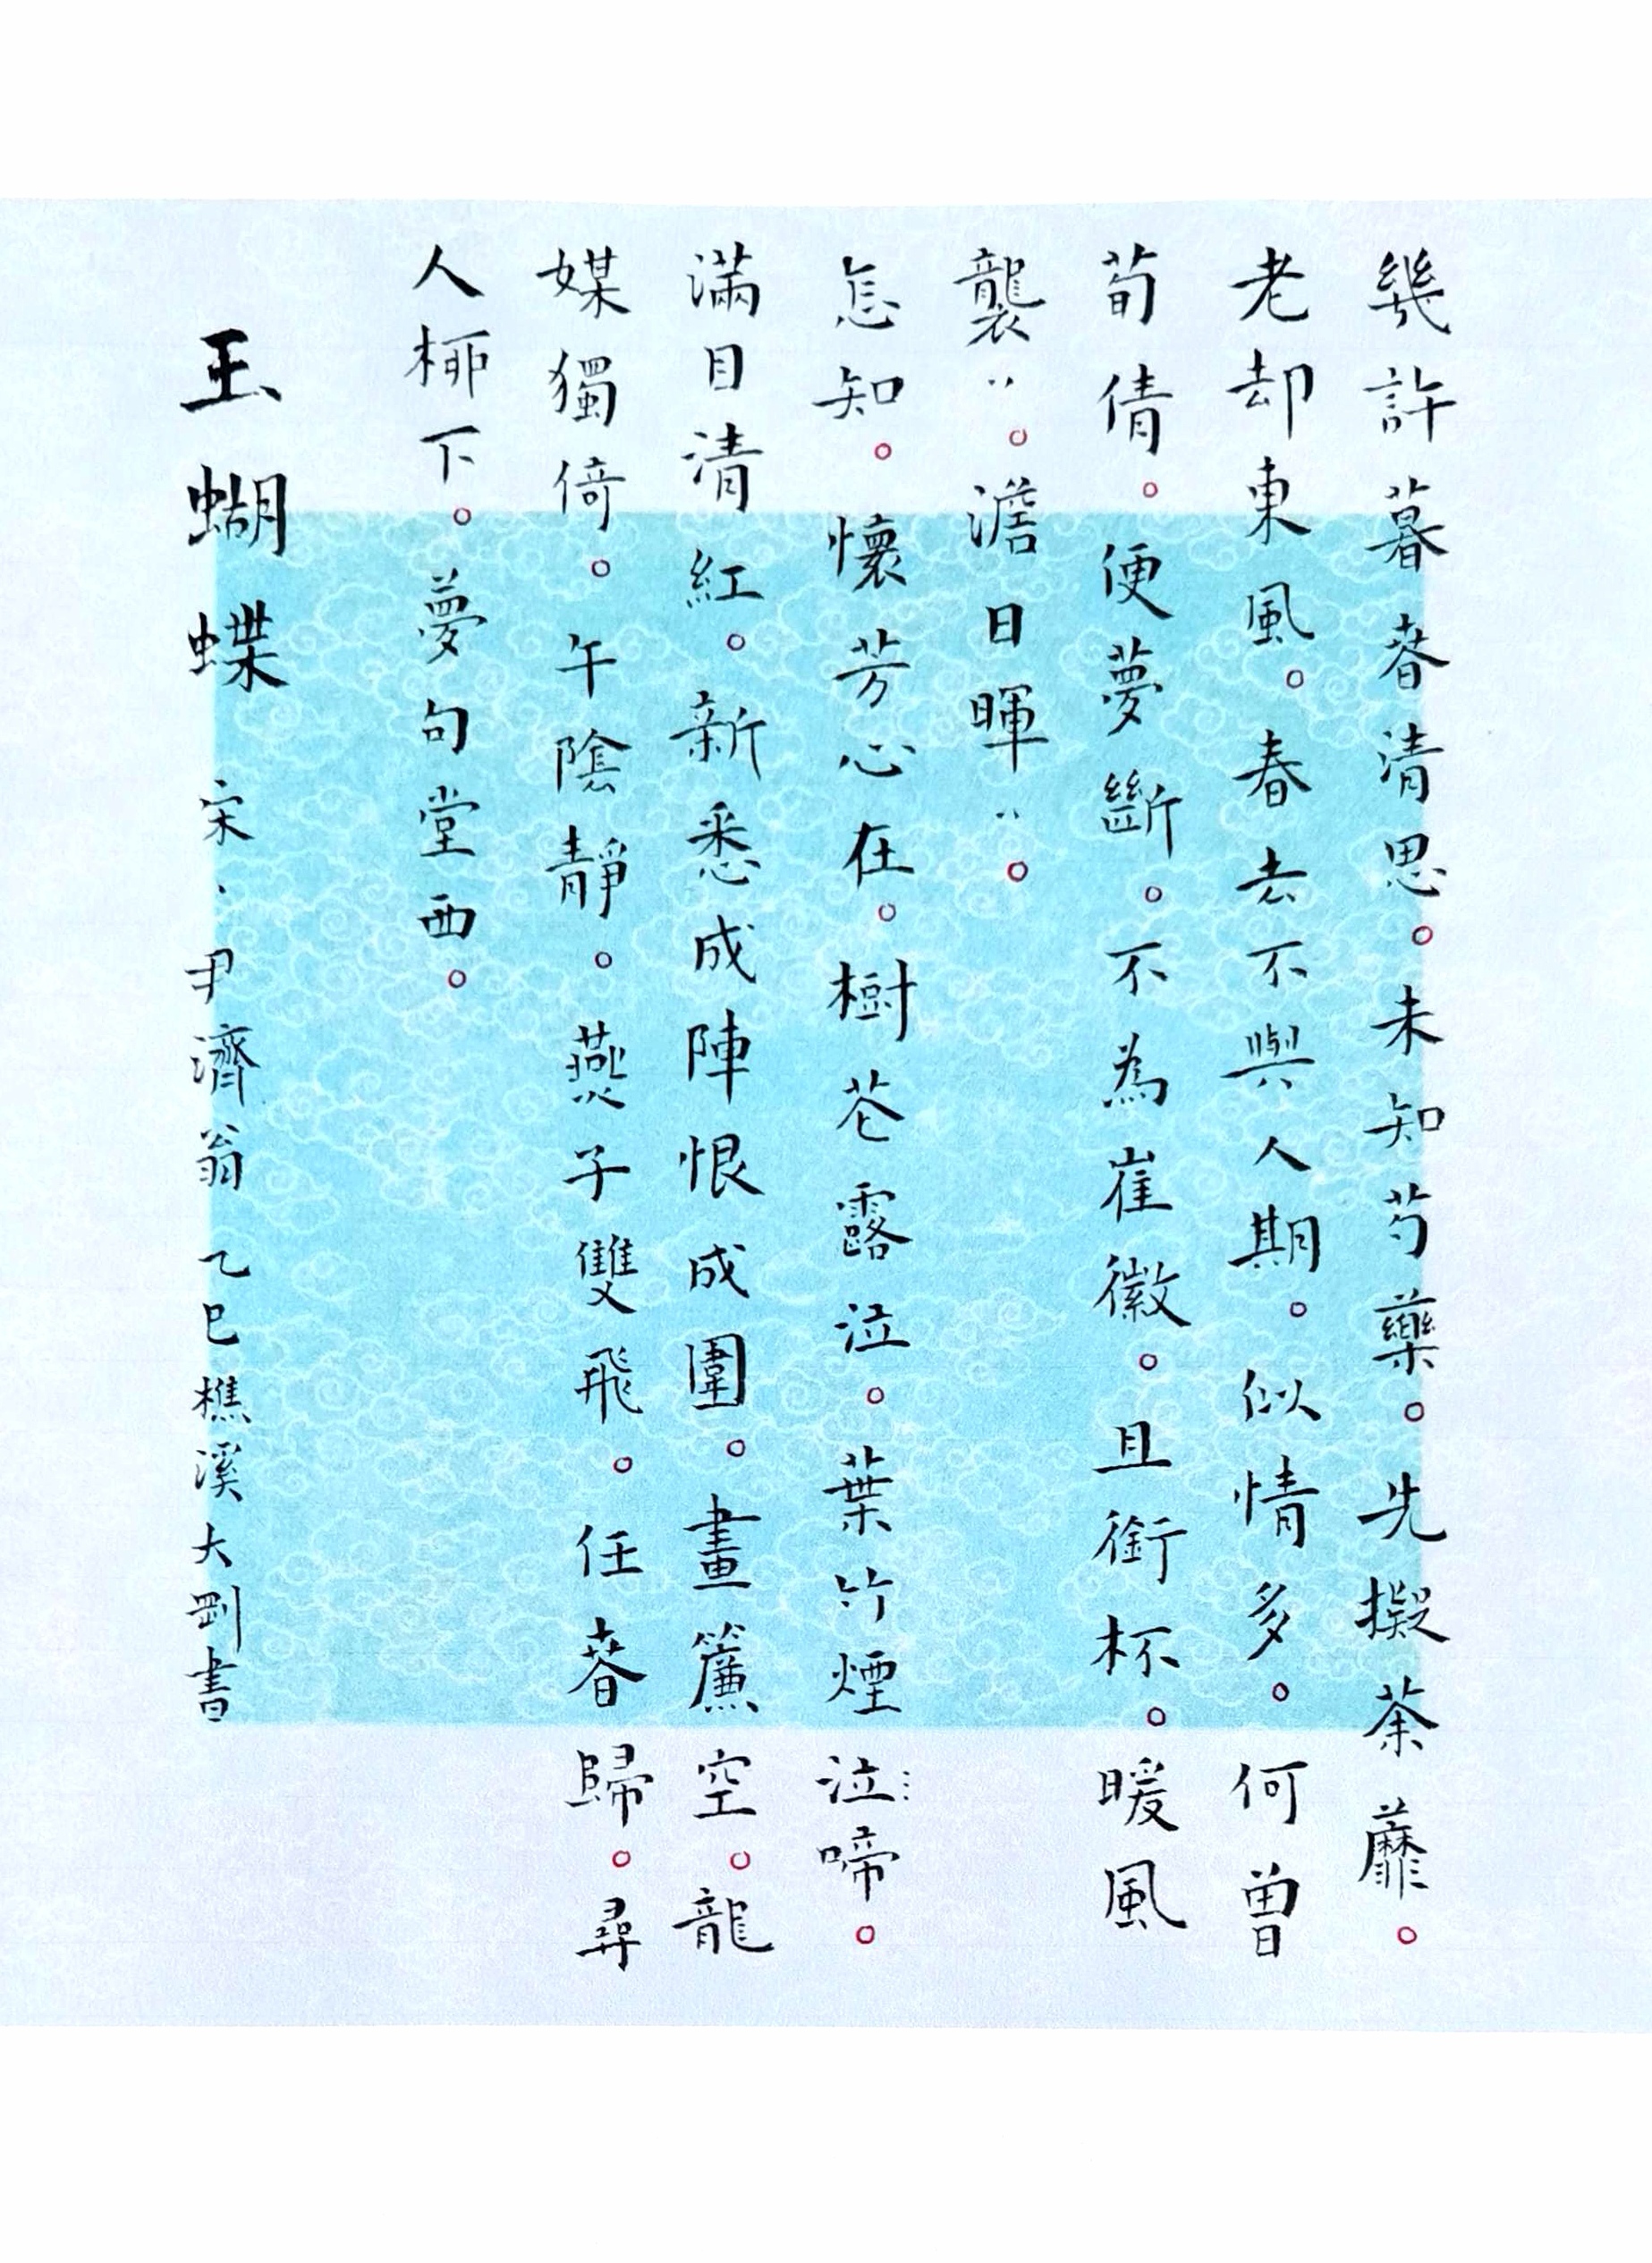 幾許暮春清思。未知芍藥。先擬荼蘼。
老却東風。春去不與人期。似情多。何曾
荀倩。便夢斷。不為崔徽。且銜杯。暖風
襲〻。澹日暉〻。
怎知。懷芳心在。樹花露泣。葉竹煙泣啼。
滿目清紅。新悉成陣恨成圍。畫簾空。龍
媒獨倚。午陰靜。燕子雙飛。任春歸。尋
人柳下。夢句堂西。
玉蝴蝶 宋、尹濟翁 乙巳樵溪大剛書